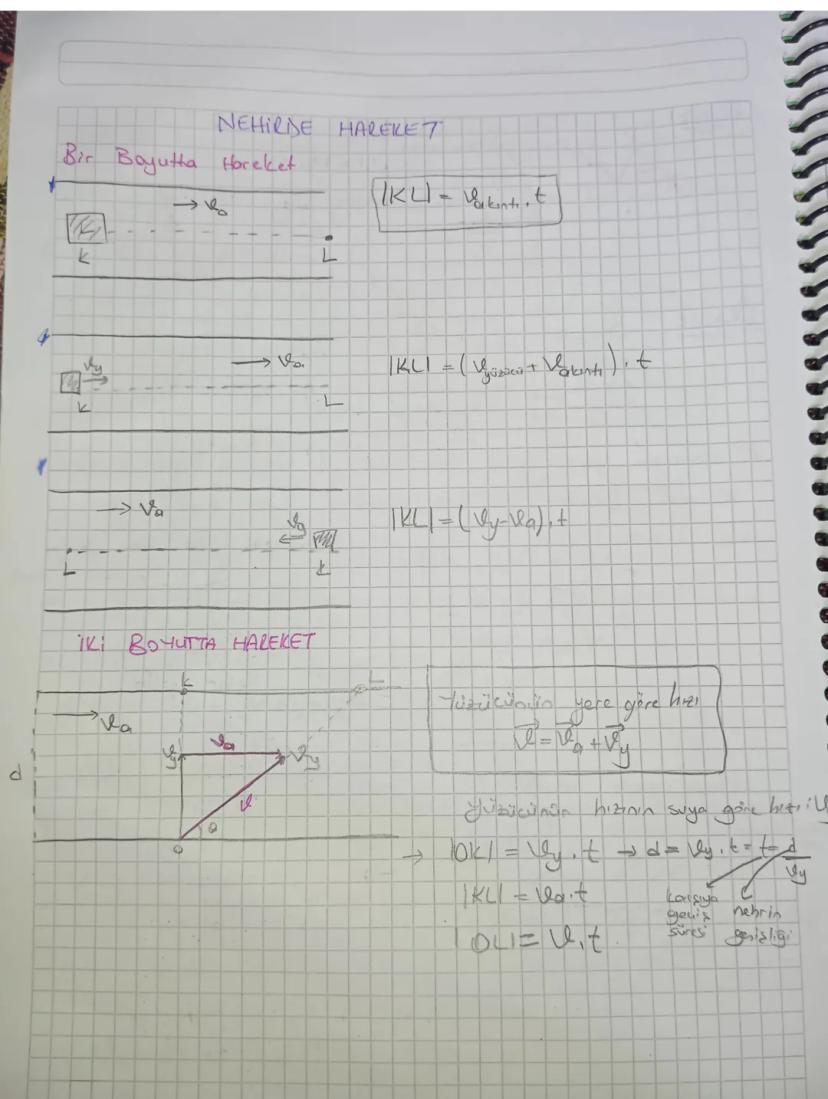 NEHİRDE HAREKET
Bir Boyutta Hareket
→ Va
K
L
|KL| = Vakıntı . t
Vy
→ Va
K
L
|KL| = (Vyüzücü + Vakıntı) . t
→ Va
Vy
L
K
|KL| = (Vy - Va) . t
İKİ BOYUTTA HAREKET
K
L
→ Va
Va
Vy
Vy
V
d
θ
O
Yüzücünün yere göre hızı
V = Va + Vy
Yüzücünün hızının suya göre hızı: V
→ |OK| = Vy . t → d = Vy . t = t = d/Vy
|KL| = Va . t
karşıya geçiş süresi
nehrin genişliği
|OL| = V . t